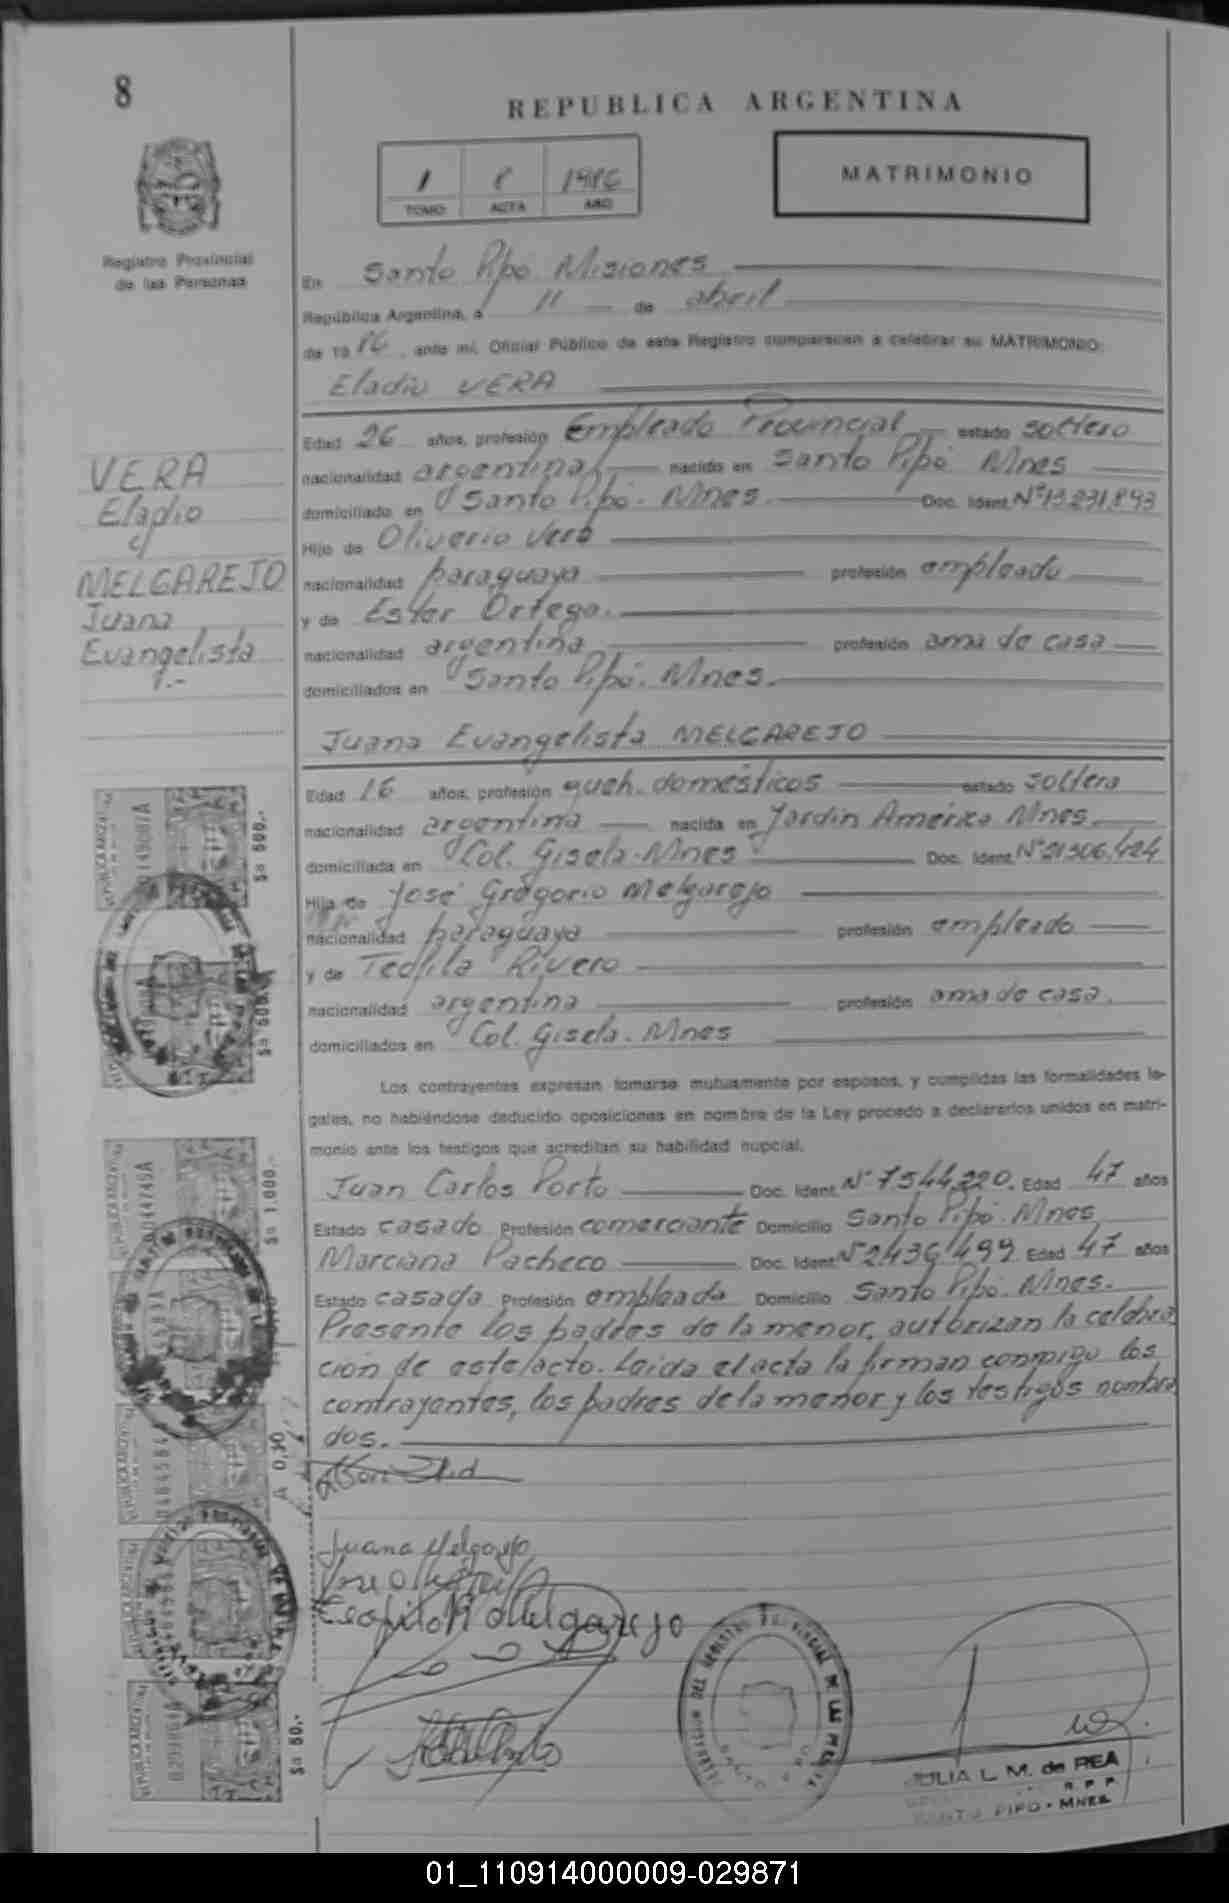 8
REPUBLICA ARGENTINA
1 8 1986
TOMO ACTA AÑO
MATRIMONIO
Registro Provincial
de las Personas
En Santo Pipó Misiones
República Argentina, a 11 de abril
de 19 86, ante mí, Oficial Público de este Registro comparecen a celebrar su MATRIMONIO:
Eladio VERA
Edad 26 años, profesión Empleado Provincial estado soltero
nacionalidad argentina nacido en Santo Pipó Mnes
domiciliado en Santo Pipó. Mnes. Doc. Ident. Nº 13.231.893
Hijo de Oliverio Vera
nacionalidad paraguaya profesión empleado
y de Ester Ortega.
nacionalidad argentina profesión ama de casa
domiciliados en Santo Pipó. Mnes.
VERA
Eladio
y
MELGAREJO
Juana
Evangelista
1.-
Juana Evangelista MELGAREJO
Edad 16 años, profesión queh. domésticos estado soltera
nacionalidad argentina nacida en Jardín América Mnes.
domiciliada en Col. Gisela-Mnes Doc. Ident. Nº 21.306.424
Hija de José Gregorio Melgarejo
nacionalidad paraguaya profesión empleado
y de Teofila Rivero
nacionalidad argentina profesión ama de casa.
domiciliados en Col. Gisela. Mnes
Los contrayentes expresan tomarse mutuamente por esposos, y cumplidas las formalidades le-
gales, no habiéndose deducido oposiciones en nombre de la Ley procedo a declararlos unidos en matri-
monio ante los testigos que acreditan su habilidad nupcial.
Juan Carlos Porto Doc. Ident. Nº 7.544.220. Edad 47 años
Estado casado Profesión comerciante Domicilio Santo Pipó. Mnes
Marciana Pacheco Doc. Ident. Nº 2.436.499 Edad 47 años
Estado casada Profesión empleada Domicilio Santo Pipó. Mnes.
Presente los padres de la menor, autorizan la celebra
ción de este acto. Leída el acta la firman conmigo los
contrayentes, los padres de la menor y los testigos nombra
dos.
Juana Melgarejo
Melgarejo
JULIA L. M. de REA
R. P. P.
SANTO PIPO - MNES.
REPUBLICA ARGENTINA
$a 500.-
$a 500.-
$a 1.000.-
A 0,30
$a 50.-
01_110914000009-029871